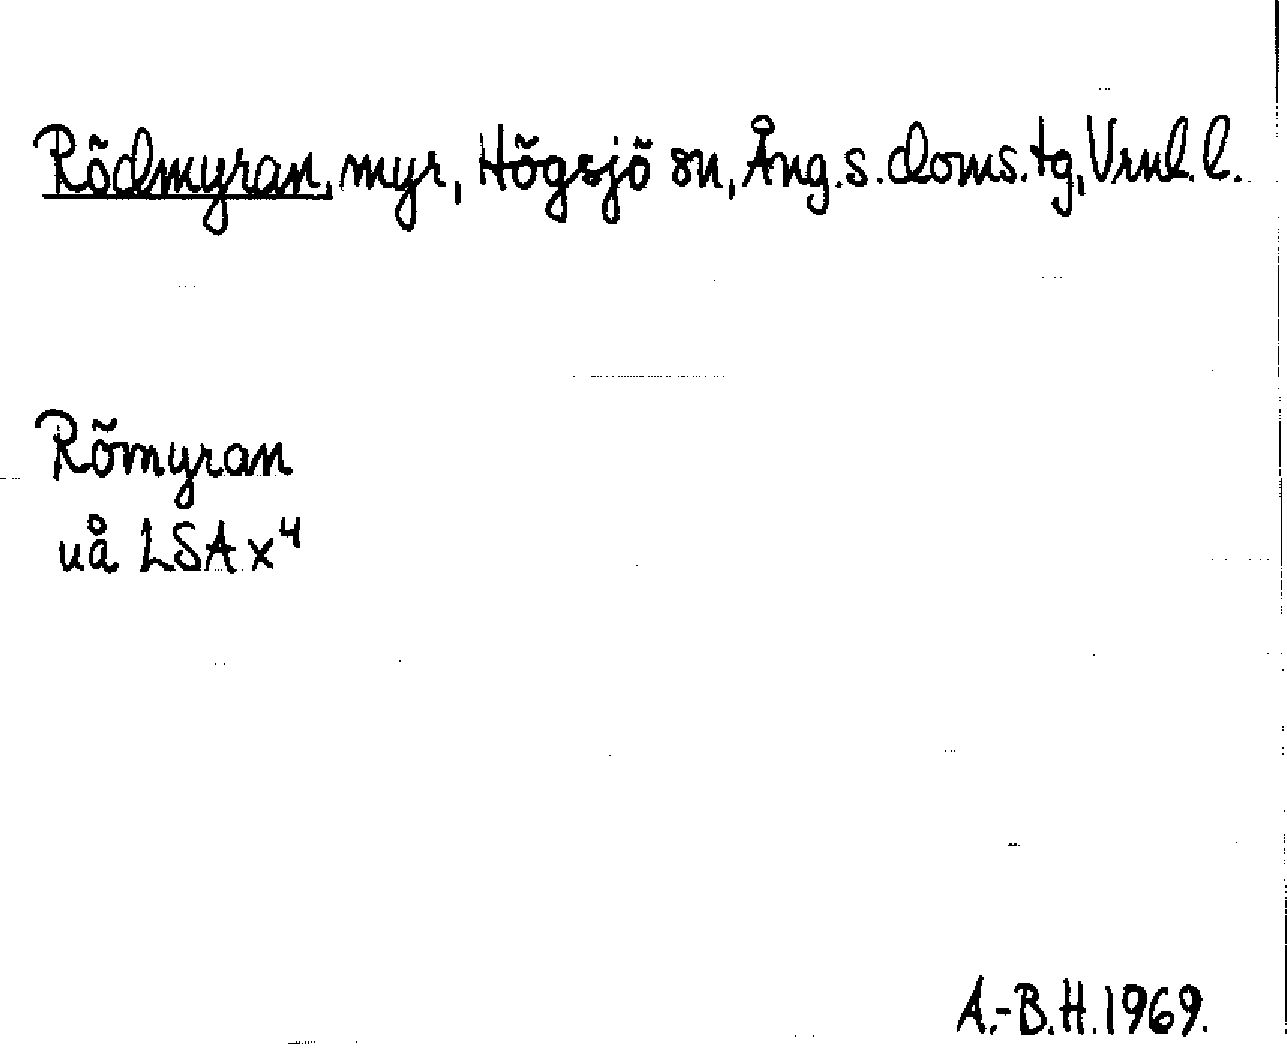 Rödmyran, myr, Högsjö sn, Ång.s.doms.tg, Vrnl.l.
Römyran
uå LSA x⁴
A.-B.H.1969.